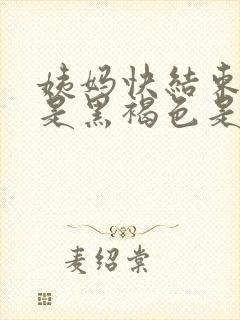 姨妈快结束
是黑褐色是
麦绍棠